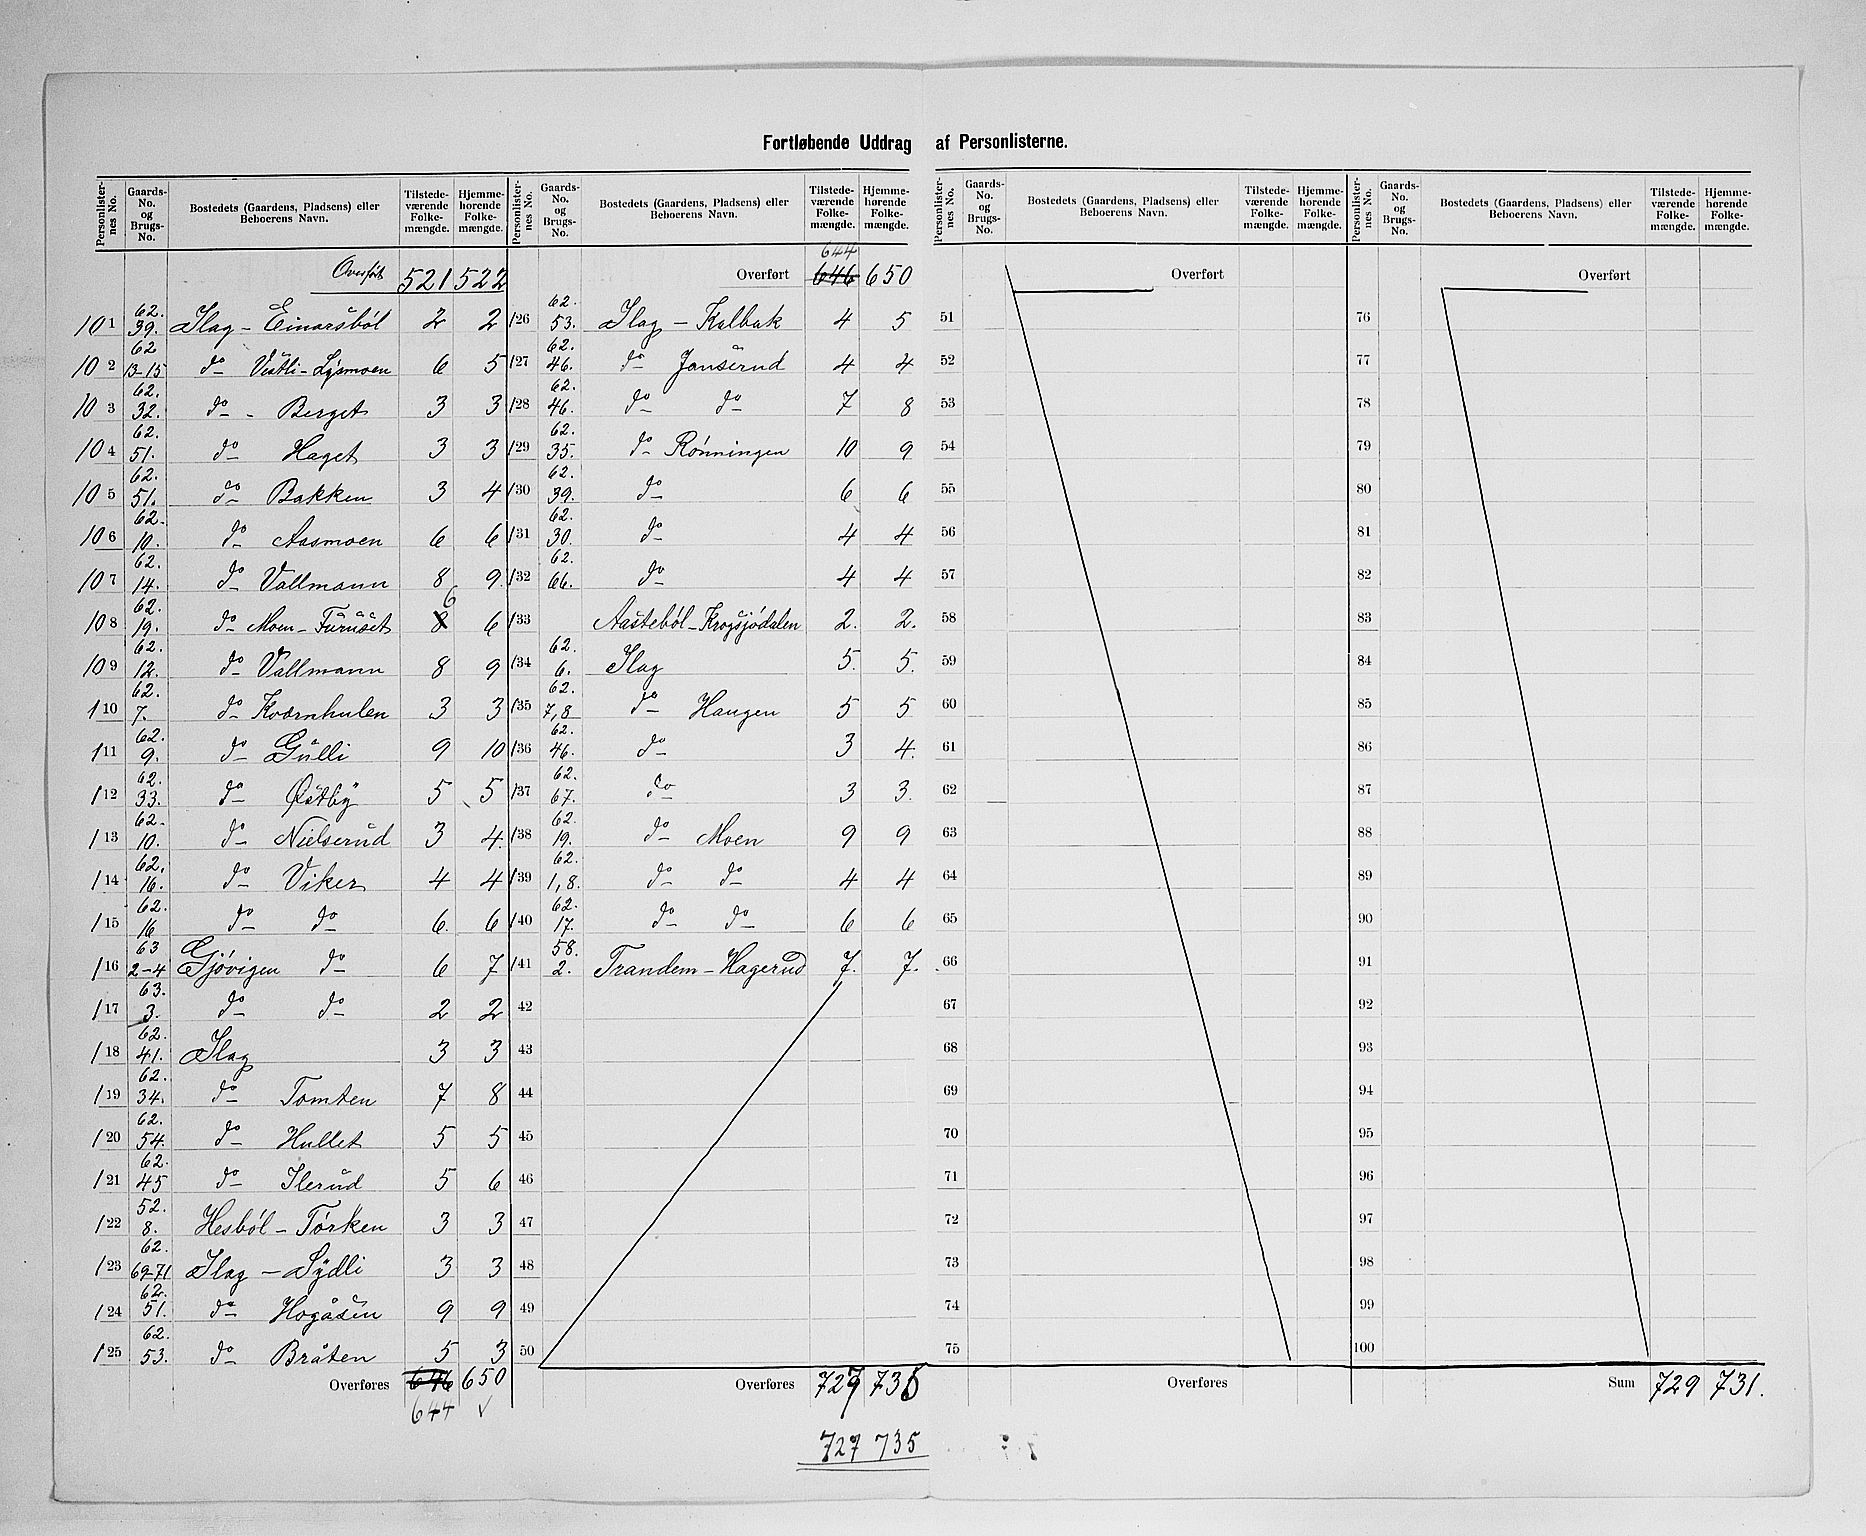 Fortløbende Uddrag af Personlisterne.
Personlisternes No. | Gaards-No. og Brugs-No. | Bostedets (Gaardens, Pladsens) eller Beboerens Navn. | Tilstedeværende Folkemængde. | Hjemmehørende Folkemængde.
Overført 521 522
101 62. 39. Ilag - Einarsböl 2 2
102 62 13-15 do Vestli-Lysmoen 6 5
103 62. 32. do - Berget 3 3
104 62. 51. do Haget 3 3
105 62. 51. do Bakken 3 4
106 62. 10. do Aasmoen 6 6
107 62. 14. do Vallmann 8 9.
108 62. 19. do Moen-Furuset 8 6 6
109 62. 12. do Vallmann 8 9
110 62. 7. do Kværnhulen 3 3
111 62. 9. do Gulli 9 10
112 62. 33. do Østby 5 5
113 62. 10. do Nielserud 3 4.
114 62. 16. do Viker 4 4
115 62. 16 do do 6 6
116 63 2-4 Gjövigen do 6 7
117 63. 3. do do 2 2
118 62. 41. Ilag 3 3
119 62. 34. do Tomten 7 8
120 62. 54. do Hullet 5 5
121 62. 45 do Ilerud 5 6
122 52. 8. Hesböl - Törken 3 3
123 62. 69-71 Ilag - Sydli 3 3
124 62. 51. do Hogåsen 9 9
125 62. 53. do Bråten 5 3
Overføres 646 650
644 √
Personlisternes No. | Gaards-No. og Brugs-No. | Bostedets (Gaardens, Pladsens) eller Beboerens Navn. | Tilstedeværende Folkemængde. | Hjemmehørende Folkemængde.
644
Overført 646 650
126 62. 53. Ilag - Kalbak 4 5
127 62. 46. do Janserud 4 4
128 62. 46. do do 7 8
129 62. 35. do Rönningen 10 9
130 62. 39. do 6 6
131 62. 30. do 4 4
132 62. 66. do 4 4
133 Aasteböl-Krogsjödalen 2. 2.
134 62. 6. Ilag 5. 5.
135 62. 7,8 do Haugen 5 5
136 62. 46. do 3 4.
137 62. 67. do 3 3.
138 62. 19. do Moen 9 9
139 62. 1,8. do do 4 4
140 62. 17. do do 6 6
141 58. 2. Trandem-Hagerud 7. 7.
42
43
44
45
46
47
48
49
50
Overføres 727 735
727 735
Personlisternes No. | Gaards-No. og Brugs-No. | Bostedets (Gaardens, Pladsens) eller Beboerens Navn. | Tilstedeværende Folkemængde. | Hjemmehørende Folkemængde.
Overført
51
52
53
54
55
56
57
58
59
60
61
62
63
64
65
66
67
68
69
70
71
72
73
74
75
Overføres
Personlisternes No. | Gaards-No. og Brugs-No. | Bostedets (Gaardens, Pladsens) eller Beboerens Navn. | Tilstedeværende Folkemængde. | Hjemmehørende Folkemængde.
Overført
76
77
78
79
80
81
82
83
84
85
86
87
88
89
90
91
92
93
94
95
96
97
98
99
100
Sum 729 731.